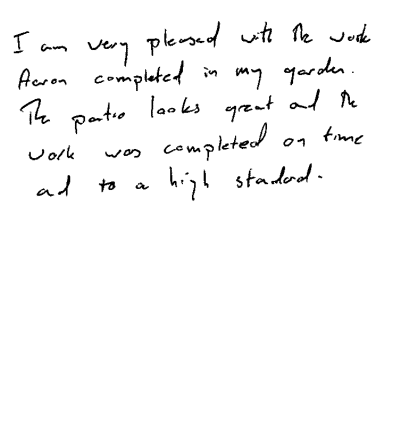 I am very pleased with the work
Aaron completed in my garden.
The patio looks great and the
work was completed on time
and to a high standard.